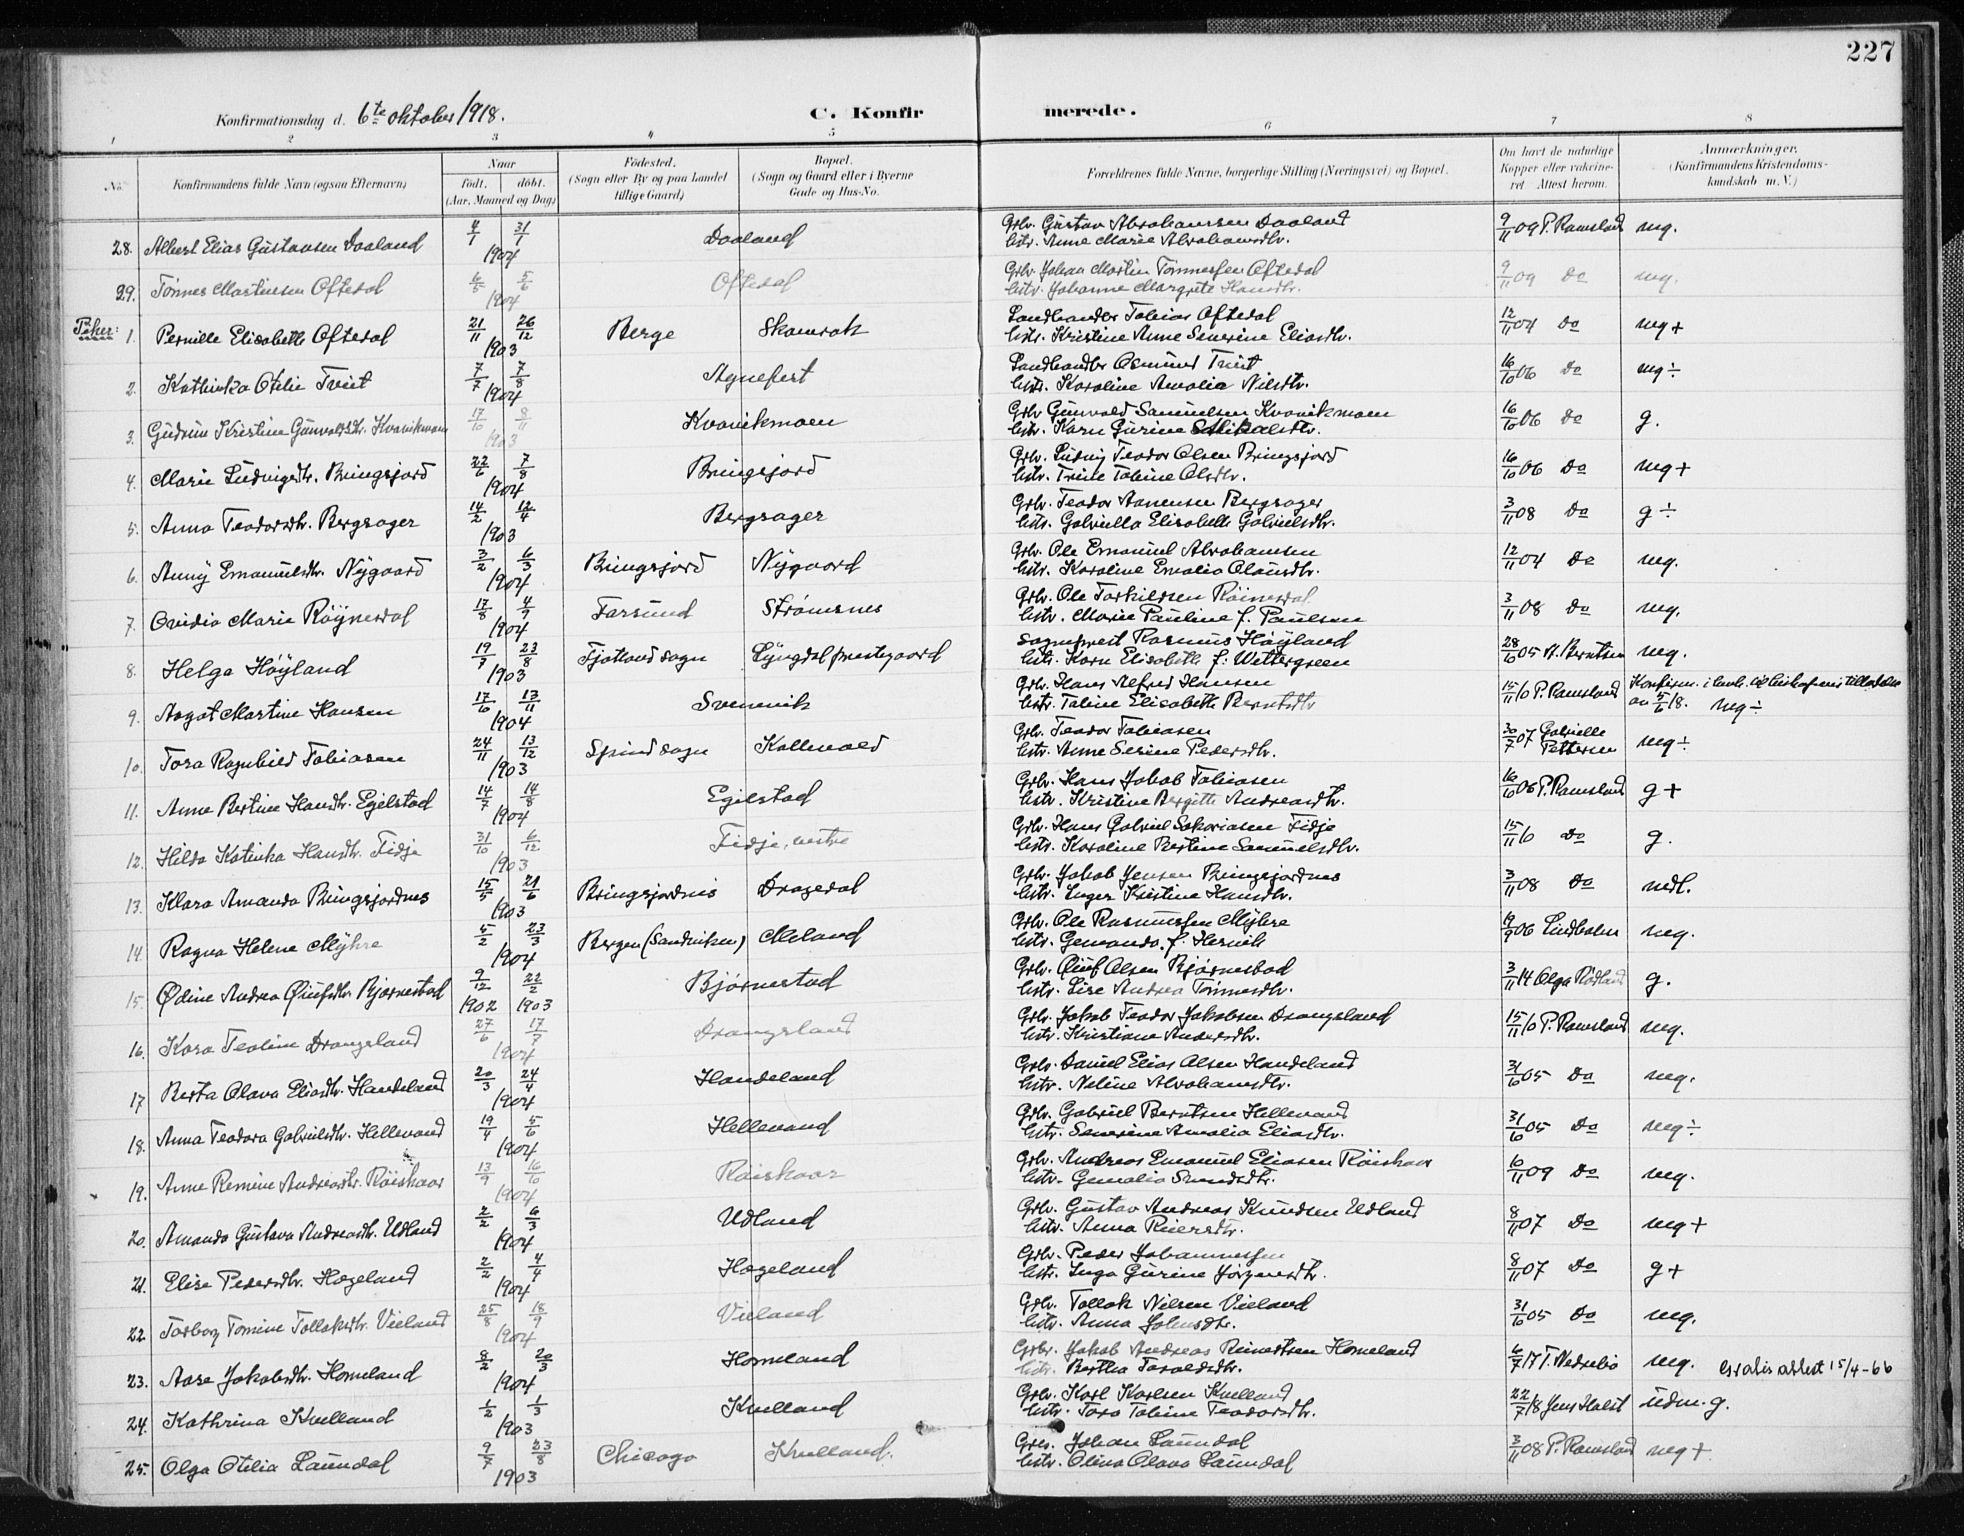 227
Konfirmationsdag d. 6te oktober 1918. C. Konfirmerede.
1 2 3 4 5 6 7 8
No. Konfirmandens fulde Navn (ogsaa Efternavn) Naar født. døbt. (Aar, Maaned og Dag) Fødested. (Sogn eller By og paa Landet tillige Gaard) Bopæl. (Sogn og Gaard eller i Byerne Gade og Hus-No. Forældrenes fulde Navne, borgerlige Stilling (Næringsvei) og Bopæl. Om havt de naturlige Kopper eller vakcineret Attest herom. Anmærkninger. (Konfirmandens Kristendomskundskab m.V.)
28. Albert Elias Gustavsen Daaland 4/1 31/1 1904 Daaland Grbr. Gustav Abrahamsen Daaland 9/11 09 P. Ramsland mg.
hstr. Anne Marie Abrahamsdtr.
29. Tønnes Martinsen Oftedal 6/5 5/6 1904 Oftedal Grbr. Johan Martin Tønnessen Oftedal 9/11 09 Do mg.
hstr. Johanne Margrete Hansdtr.
Piker:
1. Pernille Elisabeth Oftedal 21/11 26/12 1903 Berge Skamrak Landhandler Tobias Oftedal 12/11 04 Do mg+
hstr. Kristine Anne Severine Eliasdtr.
2. Kathinka Otilie Tveit 7/7 7/8 1904 Agnefest Landhandler Osmund Tveit 16/10 06 Do mg÷
hstr. Karoline Amalia Nilsdtr.
3. Gudrun Kristine Gunvaldsdtr. Kvavikmoen 17/10 8/11 1903 Kvavikmoen Grbr Gunvald Samuelsen Kvavikmoen 16/10 06 Do g.
hstr. Karn Gurine
4. Marie Ludvigsdtr. Bringsjord 22/6 7/8 1904 Bringsjord Grbr. Ludvig Teodor Olsen Bringsjord 16/10 06 Do mg+
hstr. Trine Tobine Olsdtr.
5. Anna Teodorsdtr. Bergsager 14/2 12/4 1903 Bergsager Grbr. Teodor Aanensen Bergsager 3/11 08 Do g÷
hstr. Gabriella Elisabeth Gabrielsdtr.
6. Anny Emanuelsdtr. Nygaard 3/2 6/3 1904 Bringsjord Nygaard Grbr. Ole Emanuel Abrahamsen 12/11 04 Do mg.
hstr. Karoline Emalia Olausdtr.
7. Ovidia Marie Röynesdal 17/8 4/9 1904 Farsund Strømsnes Grbr. Ole Torkildsen Röinesdal 3/11 08 Do mg.
hstr. Marie Pauline f. Paulsen
8. Helga Höyland 19/7 23/8 1903 Fjotland sogn Lyngdal prestegaard Sogneprest Rasmus Höyland 28/6 05 A. Berntsen mg.
hstr. Karn Elisabeth f: Wettergreen
9. Aagot Martine Hansen 17/6 13/11 1904 Svennevik Grbr. Hans Alfred Hansen 15/11 10 P. Ramsland Konfirm. i henh. til biskopens tilladelse
hstr. Taline Elisabeth Berntsdtr av 5/6 18. mg÷
10. Tora Ragnhild Tobiasen 24/11 13/12 1903 Spind sogn Kallevold Grbr. Teodor Tobiasen 30/7 07 Gabrielle Pettersen mg÷
hstr. Anne Serine Pedersdtr.
11. Anne Bertine Hansdtr. Egilstad 14/7 14/8 1904 Egilstad Grbr. Hans Jakob Tobiasen 16/10 06 P. Ramsland g+
hstr. Kristine Bergitte Andreasdtr.
12. Hilda Katinka Hansdtr. Fidje 31/10 6/12 1903 Fidje, vestre Grbr. Hans Gabriel Sakariasen Fidje 15/11 10 Do g.
hstr. Karoline Bertine Samuelsdtr.
13. Klara Amanda Bringsjordnes 15/5 21/6 1903 Bringsjordnes Dragedal Grbr. Jakob Jensen Bringsjordnes 3/11 08 Do mdl.
hstr. Inger Kristine Hansdtr.
14. Ragna Helene Myhre 5/2 23/3 1904 Bergen (Sandviken) Meland Grbr. Ole Rasmussen Myhre 19/9 06 Lindholm mg.
hstr. Gemanda, f.
15. Ødine Andrea Øiufsdtr. Bjørnestad 9/12 1902 22/2 1903 Bjørnestad Grbr. Øiuf Olsen Bjørnestad 3/11 14 Olga Rödland g.
hstr. Lise Andrea Tønnesdtr.
16. Kara Teoline Drangsland 27/6 17/7 1904 Drangsland Grbr. Jakob Teodor Jakobsen Drangsland 15/11 10 P. Ramsland mg.
hstr. Kristiane Andersdtr.
17. Berta Olava Eliasdtr. Handeland 20/3 24/4 1904 Handeland Grbr. Daniel Elias Olsen Handeland 31/10 05 Do mg.
hstr. Neline Abrahamsdtr.
18. Anna Teodora Gabrielsdtr. Hellevand 19/4 5/6 1904 Hellevand Grbr. Gabriel Berntsen Hellevand 31/10 05 Do mg÷
hstr. Severine Amalia Eliasdtr.
19. Anne Remine Andreasdtr. Röiskaar 13/9 16/10 1904 Röiskaar Grbr. Andreas Emanuel Eliasen Röiskaar 6/11 09 Do mg.
hstr. Gemalia Svendsdtr.
20. Amanda Gustava Andreasdtr. Udland 2/2 6/3 1904 Udland Grbr. Gustav Andreas Knudsen Udland 8/11 07 Do mg+
hstr. Anna Reiersdtr.
21. Elise Pedersdtr. Hægeland 2/2 4/4 1904 Hægeland Grbr. Peder Johannessen 8/11 07 Do g+
hstr. Inga Gurine Jörgensdtr.
22 Torborg Tomine Tollaksdtr. Vieland 25/8 18/9 1904 Vieland Grbr. Tollak Nilsen Vieland 31/10 05 Do mg.
hstr. Anna Johnsdtr.
23. Aase Jakobsdtr. Homeland 8/2 20/3 1904 Homeland Grbr. Jakob Andreas Reinertsen Homeland 6/7 17 T. Nedrebö mg. Gratis attest 15/4-66
hstr. Bertha Taraldsdtr.
24. Kathrina Kvelland 1/2 1/3 1903 Kvelland Grbr. Karl Karlsen Kvelland 22/7 18 Jens Holst udm. g.
hstr. Tora Tobine Teodorsdtr.
25. Olga Otilia Laundal 9/7 23/8 1903 Chicago Kvelland. Grbr. Johan Laundal 3/11 08 P. Ramsland mg+
hstr. Olina Olava Laundal